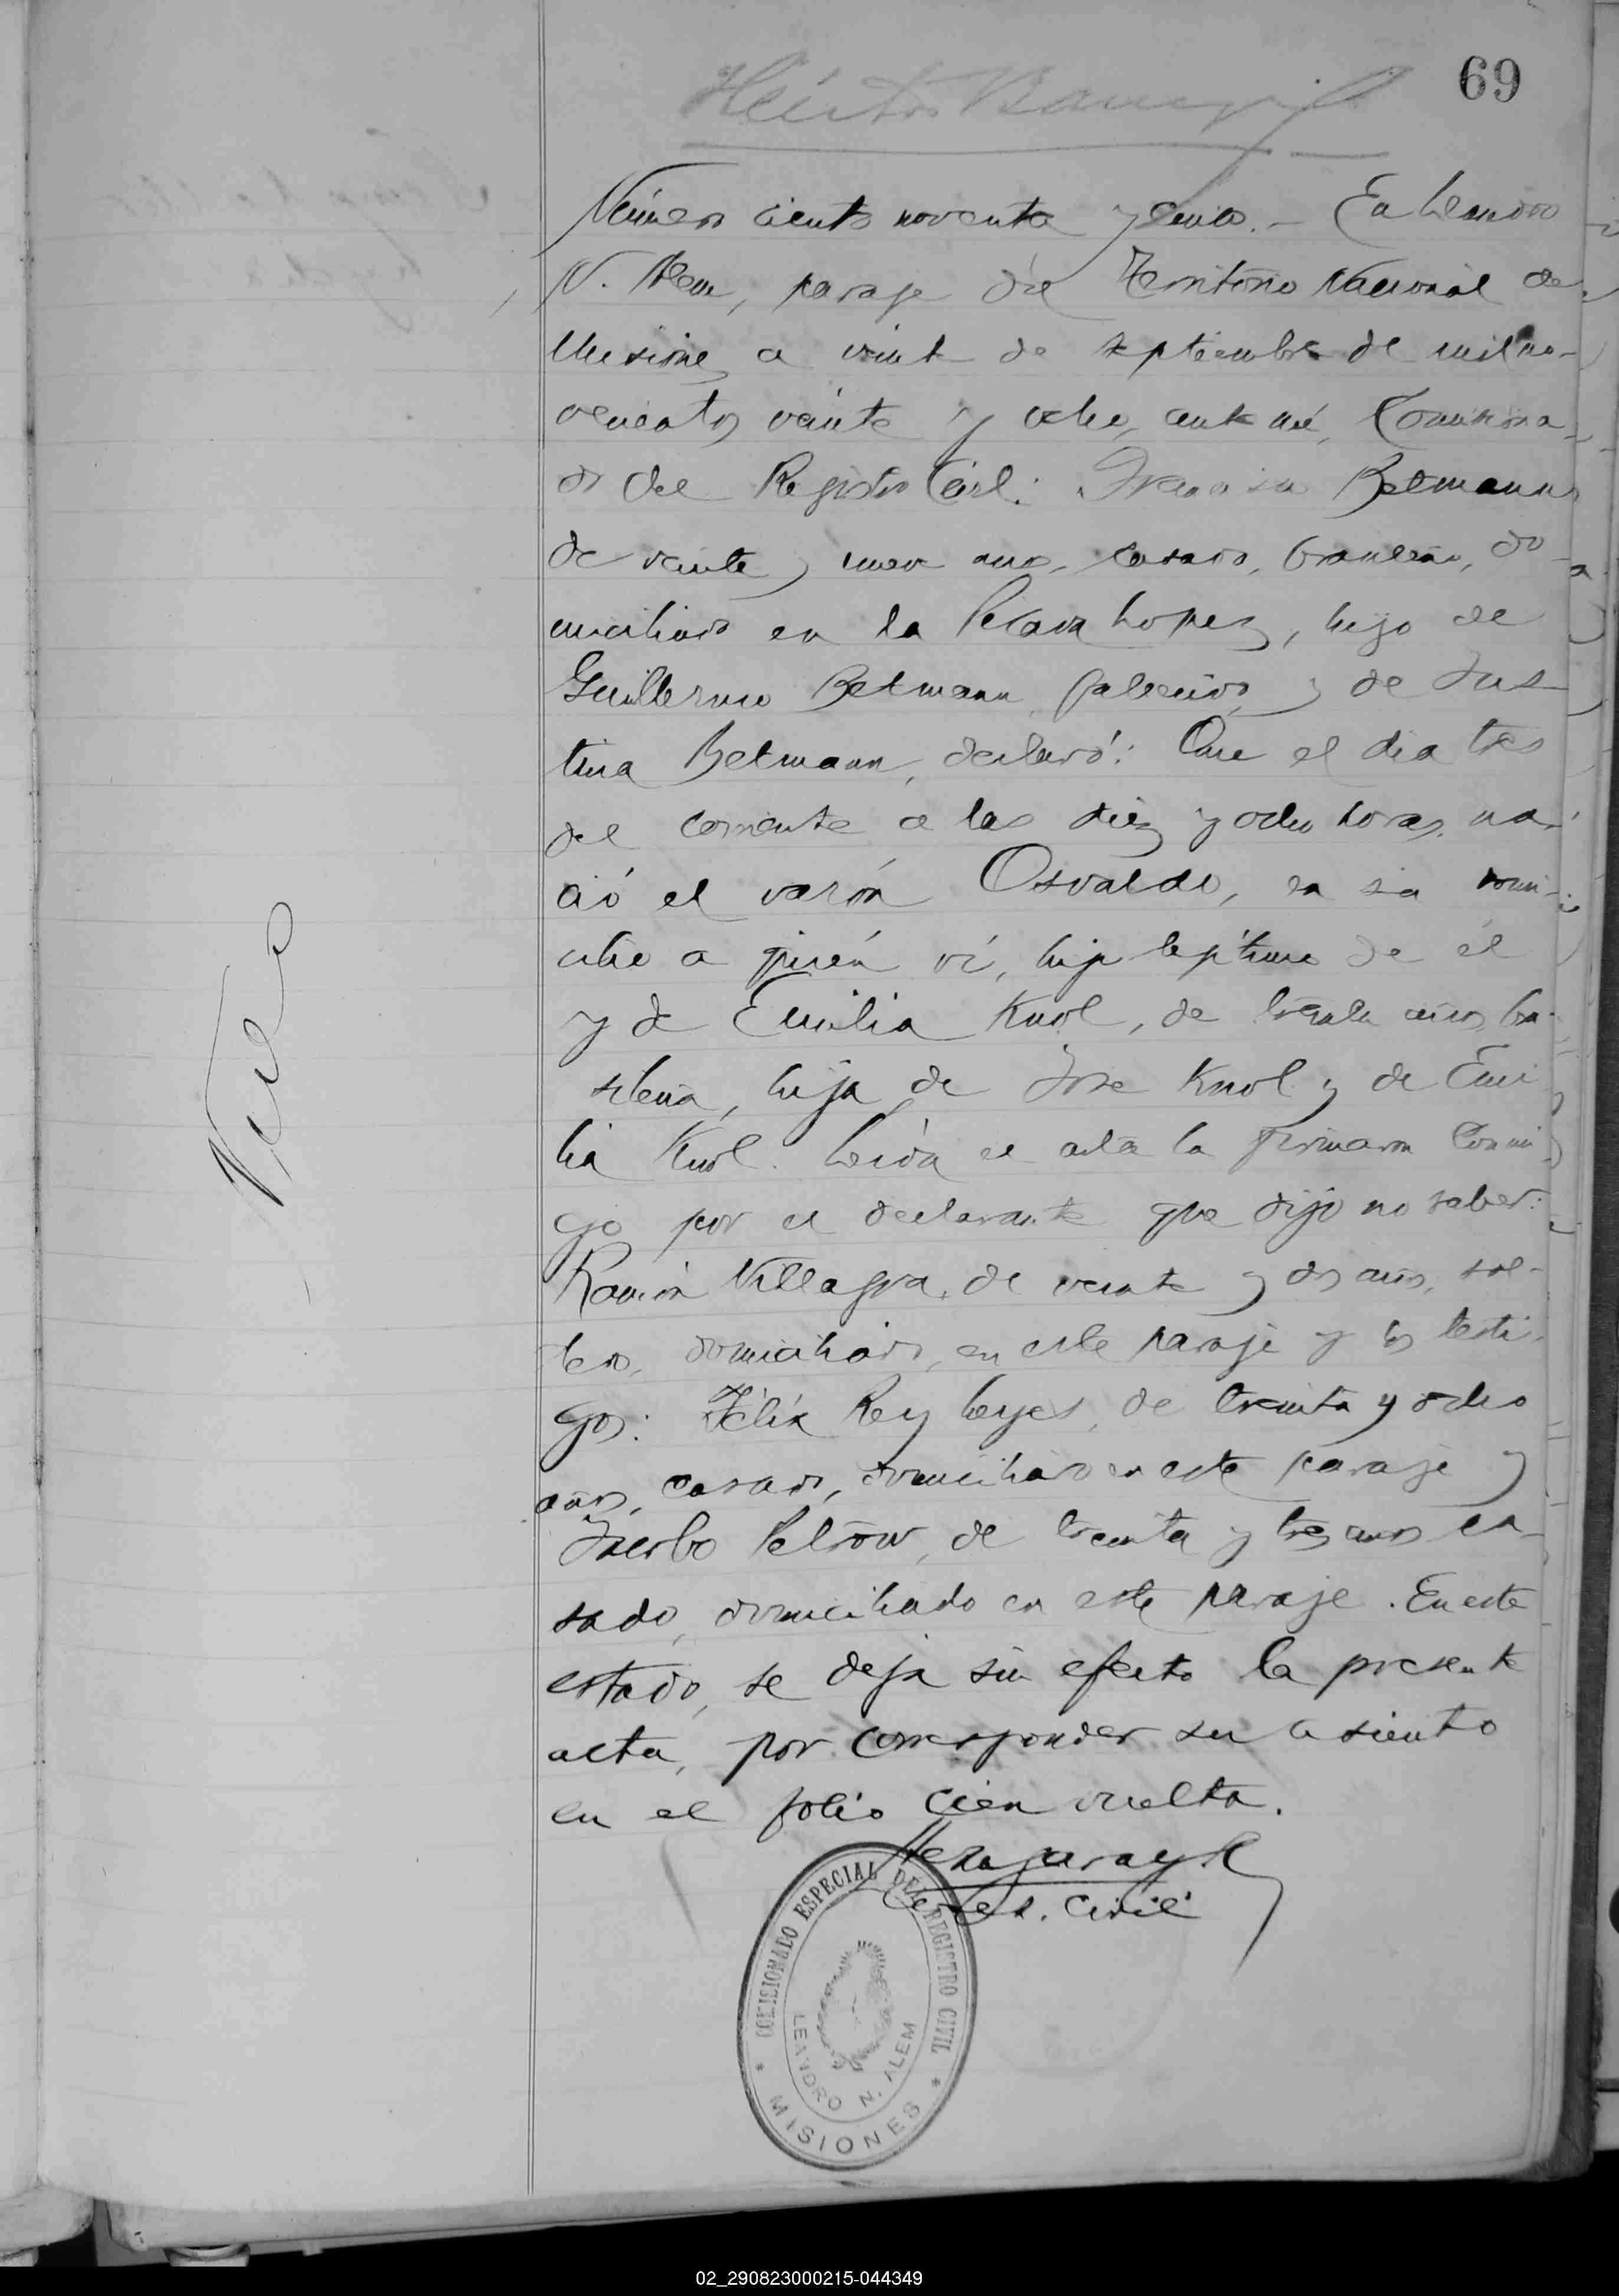 69
Número ciento noventa y cinco.- En Leandro
N. Alem, paraje del Territorio Nacional de
Misiones a veinte de septiembre de mil no-
vecientos veinte y ocho, ante mí, Comisiona-
do del Registro Civil: Betmann
de veinte y nueve años, casado, brasileño, do-
miciliado en la Picada Lopez, hijo de
Guillermo Betmann, fallecido, y de Jus-
tina Betmann, declaró: Que el día tres
del corriente a las diez y ocho horas, na-
ció el varón Osvaldo, en su domi-
cilio a quién ví, hijo legítimo de él
y de Emilia Knol, de treinta años, bra-
sileña, hija de José Knol y de Emi
lia Knol. Leída el acta la firmaron conmi
go por el declarante que dijo no saber:
Ramón Villagra, de veinte y dos años, sol-
tero, domiciliado, en este paraje y los testi-
gos: Félix Rey Leyes, de treinta y ocho
años, casado, domiciliado en este paraje y
Petrow, de treinta y tres años ca-
sado, domiciliado en este paraje. En este
estado, se deja sin efecto la presente
acta, por corresponder su asiento
en el folio cien vuelta.
Civil
COMISIONADO ESPECIAL DEL REGISTRO CIVIL
LEANDRO N. ALEM
* MISIONES *
02_290823000215-044349